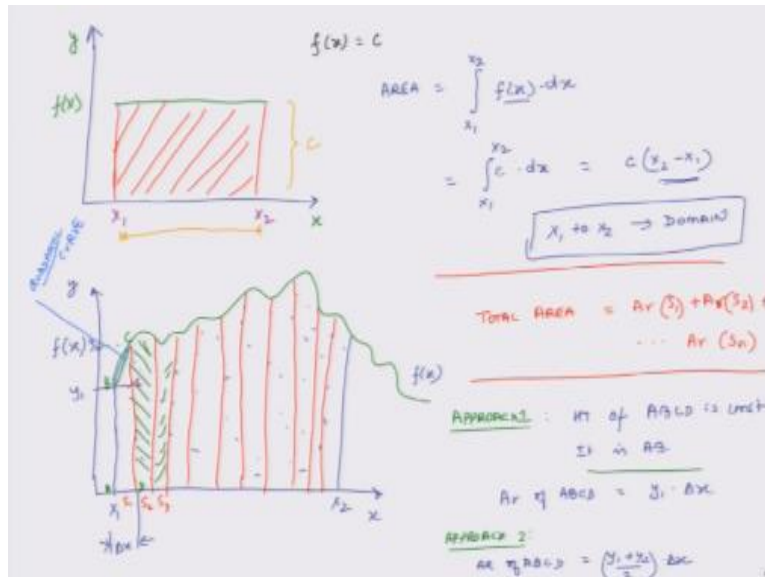 y
f(x) = c
f(x)
c
x₁
x₂
x
AREA = ∫ f(x) · dx
x₂
x₁
= ∫ c · dx = c (x₂ - x₁)
x₂
x₁
x₁ to x₂ → DOMAIN
QUADRATIC CURVE
y
f(x)
y₁
f(x)
x₁ S₁ S₂ S₃
x₂
x
Δx
TOTAL AREA = Ar (S₁) + Ar (S₂) +
... Ar (Sn)
APPROACH 1 : HT of ABCD is const
It is AB
Ar of ABCD = y₁ · Δx
APPROACH 2 :
AR of ABCD = (y₁ + y₂ / 2) · Δx